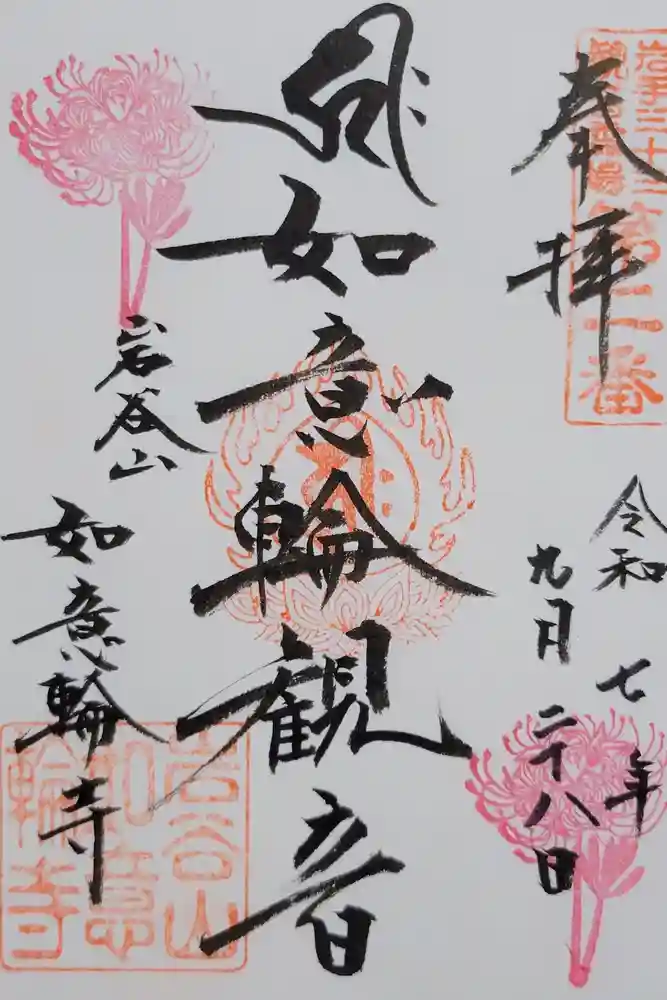 奉拝
岩手三十三
観音霊場
第二番
令和七年
九月二十八日
如意輪観音
岩谷山
如意輪寺
岩谷山
如意
輪寺